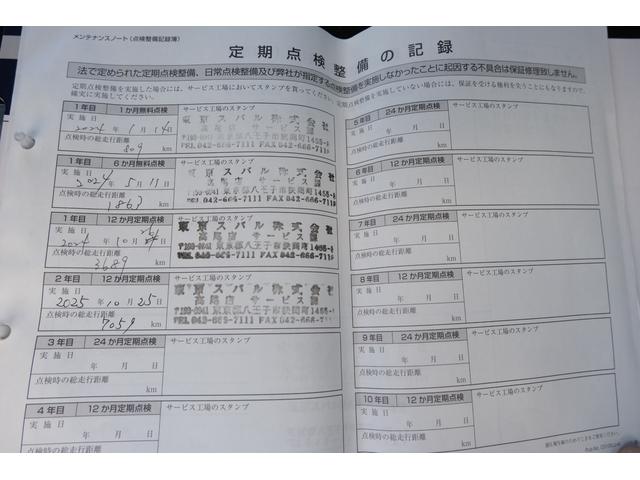 メンテナンスノート(点検整備記録簿)
定期点検整備の記録
法で定められた定期点検整備、日常点検整備及び弊社が指定する点検整備を実施しなかったことに起因する不具合は保証修理致しません。
定期点検整備を実施した場合には、サービス工場においてスタンプを貰ってください。定期点検整備を実施していない場合には、保証を受ける権利を失うことにもなりますので、
確実に実施してください。
1年目 1か月無料点検 サービス工場のスタンプ
実施日 2024年 1月 14日
点検時の総走行距離
809 km
東京スバル株式会社
高尾店 サービス課
〒193-0941 東京都八王子市狭間町1455-8
TEL 042-666-7111 FAX 042-666-7119
1年目 6か月無料点検 サービス工場のスタンプ
実施日 2024年 5月 11日
点検時の総走行距離
1863 km
東京スバル株式会社
高尾店 サービス課
〒193-0941 東京都八王子市狭間町1455-8
TEL 042-666-7111 FAX 042-666-7119
1年目 12か月定期点検 サービス工場のスタンプ
実施日 2024年 10月 26日
点検時の総走行距離
3689 km
東京スバル株式会社
高尾店 サービス課
〒193-0941 東京都八王子市狭間町1455-8
TEL 042-666-7111 FAX 042-666-7119
2年目 12か月定期点検 サービス工場のスタンプ
実施日 2025年 10月 25日
点検時の総走行距離
7059 km
東京スバル株式会社
高尾店 サービス課
〒193-0941 東京都八王子市狭間町1455-8
TEL 042-666-7111 FAX 042-666-7119
3年目 24か月定期点検 サービス工場のスタンプ
実施日 年 月 日
点検時の総走行距離
km
4年目 12か月定期点検 サービス工場のスタンプ
実施日 年 月 日
点検時の総走行距離
5年目 24か月定期点検 サービス工場のスタンプ
実施日 年 月 日
点検時の総走行距離
km
6年目 12か月定期点検 サービス工場のスタンプ
実施日 年 月 日
点検時の総走行距離
km
7年目 24か月定期点検 サービス工場のスタンプ
実施日 年 月 日
点検時の総走行距離
km
8年目 12か月定期点検 サービス工場のスタンプ
実施日 年 月 日
点検時の総走行距離
km
9年目 24か月定期点検 サービス工場のスタンプ
実施日 年 月 日
点検時の総走行距離
km
10年目 12か月定期点検 サービス工場のスタンプ
実施日 年 月 日
点検時の総走行距離
km